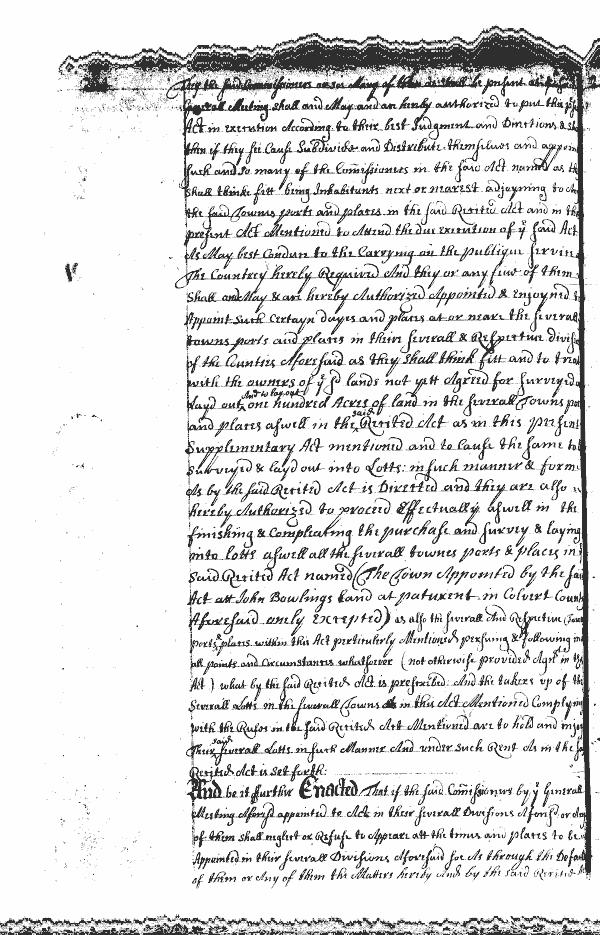 They the said Commissioners or soe Many of them as shall be present at the said
Generall Meeting shall and May and are hereby authorized to put this
Act in execution According to their best Judgment and Directions &
then if they see Cause Subdivide and Distribute themselves and appoin
such and so many of the Comissioners in the said Act named as th
shall thinke fitt being Inhabitants next or nearest adjoyning to
the said Townes ports and places in the said Recited Act and in the
present Act Mentioned to Attend the due execution of ye said Act
As May best Conduce to the Carrying on the publique Service
The Countrey hereby Required And they or any five of them
Shall and May & are hereby Authorized Appointed & Enjoyned
Appoint Such Certayn dayes and places at or near the severall
townes ports and places in their severall & Respective divisi
of the Counties Aforesaid as they shall think fitt and to treat
with the owners of ye sd lands not yett Agreed for Surveyed
And to lay out
Layd out one hundred Acres of land in the severall Towns por
said
and places aswell in the Recited Act as in this present
Supplimentary Act mentioned and to Cause the same to b
Surveyed & layd out into Lotts: in such manner & form
As by the said Recited Act is Directed and they are also
hereby Authorized to proceed Effectually aswell in the
finishing & Compleating the purchase and survey & laying
into lotts aswell all the severall townes ports & places in
Said Recited Act named (The Town Appointed by the sai
Act att John Bowlings Land at patuxent in Colvert County
Aforesaid only Excepted) as also the severall And Respective Town
ports & places within this Act perticulerly Mentioned persuing & following in
all points and Circumstances whatsoever (not otherwise provided Agst in th
Act) what by the said Recited Act is prescribed And the takers up of the
Severall Lotts in the severall Towns in this Act Mentioned Complying
with the Rules in the said Recited Act Mentioned are to hold and injoy
said
Their severall Lotts in such Manner And under such Rent As in the
Recited Act is set forth:
And be it further Enacted That if the said Comissioners by ye generall
Meeting Aforesd appointed to Act in their severall Divisions Aforesd or Any
of them shall neglect or Refuse to Appeare att the times and places to be
Appointed in their severall Divisions Aforesaid soe As through the Default
of them or Any of them the Matters hereby And by the said Recited